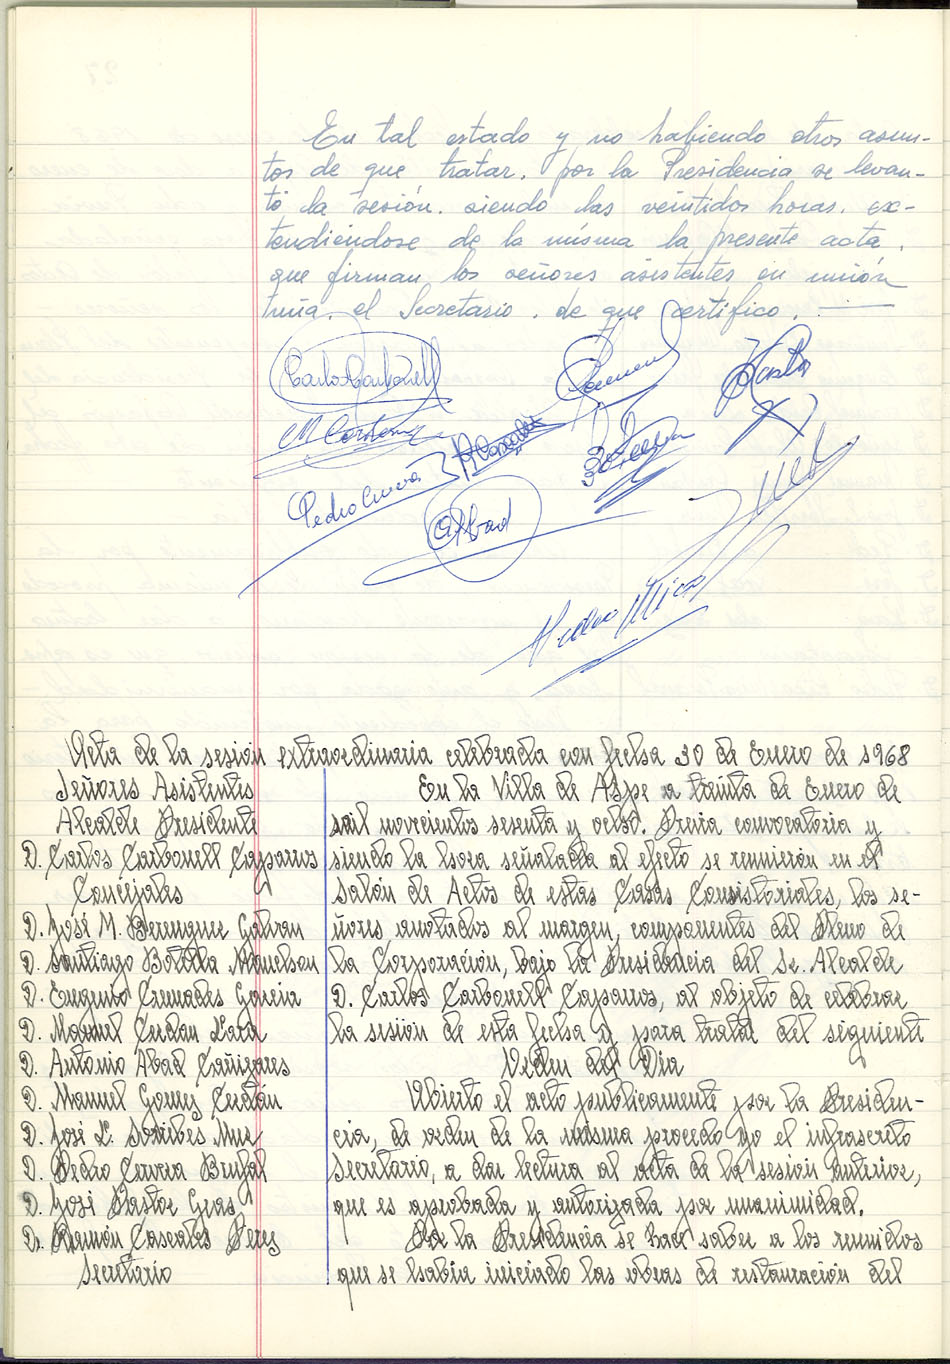 En tal estado y no habiendo otros asun-
tos de que tratar, por la Presidencia se levan-
tó la sesión, siendo las veintidos horas, ex-
tendiéndose de la misma la presente acta,
que firman los señores asistentes en unión
mía, el Secretario, de que certifico.
Carlos Carbonell
Pedro Cerera
A Abad
Acta de la sesión extraordinaria celebrada con fecha 30 de Enero de 1968
Señores Asistentes
Alcalde Presidente
D. Carlos Carbonell Caparros
Concejales
D. José M. Berenguer Galvan
D. Santiago Botella
D. Eugenio Cremades Garcia
D. Manuel Cerdan Lara
D. Antonio Abad Cañizares
D. Manuel Gomez Cerdán
D. José L.
D. Pedro Cerera
D. José Pastor Gras
D. Ramón Cascales Perez
Secretario
En la Villa de Aspe a treinta de Enero de
mil novecientos sesenta y ocho. Previa convocatoria y
siendo la hora señalada al efecto se reunieron en el
Salón de Actos de estas Casas Consistoriales, los se-
ñores anotados al margen, componentes del Pleno de
la Corporación, bajo la Presidencia del Sr. Alcalde
D. Carlos Carbonell Caparros, al objeto de celebrar
la sesión de esta fecha y para tratar del siguiente
Orden del Dia
Abierto el acto publicamente por la Presiden-
cia, de orden de la misma procedo yo el infrascrito
Secretario, a dar lectura al acta de la sesión anterior,
que es aprobada y autorizada por unanimidad.
Por la Presidencia se hace saber a los reunidos
que se habia iniciado las obras de restauración del